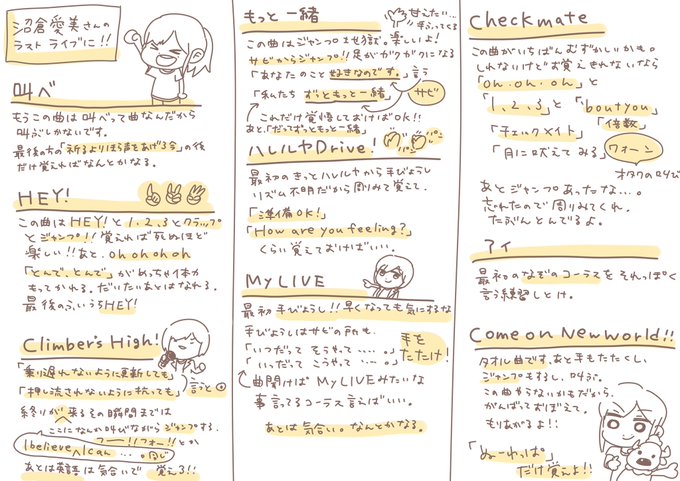 沼倉愛美さんの
ラストライブに!!
叫べ
もうこの曲は叫べって曲なんだから
叫ぶしかないです。
最後の方の「祈るよりほら声をあげる今」の後
だけ覚えればなんとかなる。
HEY!
この曲はHEY!と1,2,3とクラップ
とジャンプ!!覚えれば死ぬほど
楽しい!!あと、ohohohoh
「とんで、とんで」がめっちゃ体力
もってかれる。だいたいあとはなれる。
最後のふいうちHEY!
Climber's High!
「乗り遅れないように更新しても」
「押し流されないように抗っても」言うと
終りが来るその瞬間までは
ここになんか叫びながらジャンプする。
フー!!フォー!!とか
Ibelieve Ican…。同じ
あとは英語は気合いで 覚えろ!!
もっと一緒
この曲はジャンプ地獄。楽しいよ!
サビからジャンプ!!足がガクガクになる
「あなたのこと好きなのです。」言う
「私たち ずっともっと一緒」サビ
これだけ覚悟しておけばOK!!
あと、「だってずっともっと一緒」
ハレルヤDrive!
パン パン
最初のきっとハルルヤから手びょうし
リズム不明だから周りみて覚えて。
「準備OK!」
「How are you feeling?」
くらい覚えておけばいい。
My LIVE
最初手びょうし!!早くなっても気にするな
手びょうしはサビの所も、
「いつだって そうやって……。」
「いつだって こうやって……。」
手をたたけ!
曲聞けば My LIVEみたいな
事言ってるコーラス言えばいい。
あとは気合い。なんとかなる。
Checkmate
この曲がいちばんむずかしいかも。
しれないけどお覚えきれないなら
「oh.oh.oh」と
「1,2,3」と「boutyou」
「チェックメイト」「倍数」
「月に吠えてみる」ウォーン
オタクの叫び
あとジャンプあったな…。
忘れたので周りみてくれ。
たぶんとんでるよ。
アイ
最初のなぞのコーラスをそれっぽく
言う練習しとけ。
Come on New world!!
タオル曲です。あと手もたたくし
ジャンプもするし、叫ぶ。
この曲やらないかもだから。
がんばっておぼえて。
もりあがるよ!!
「ぬーわっぱ」
だけ覚えよ!!